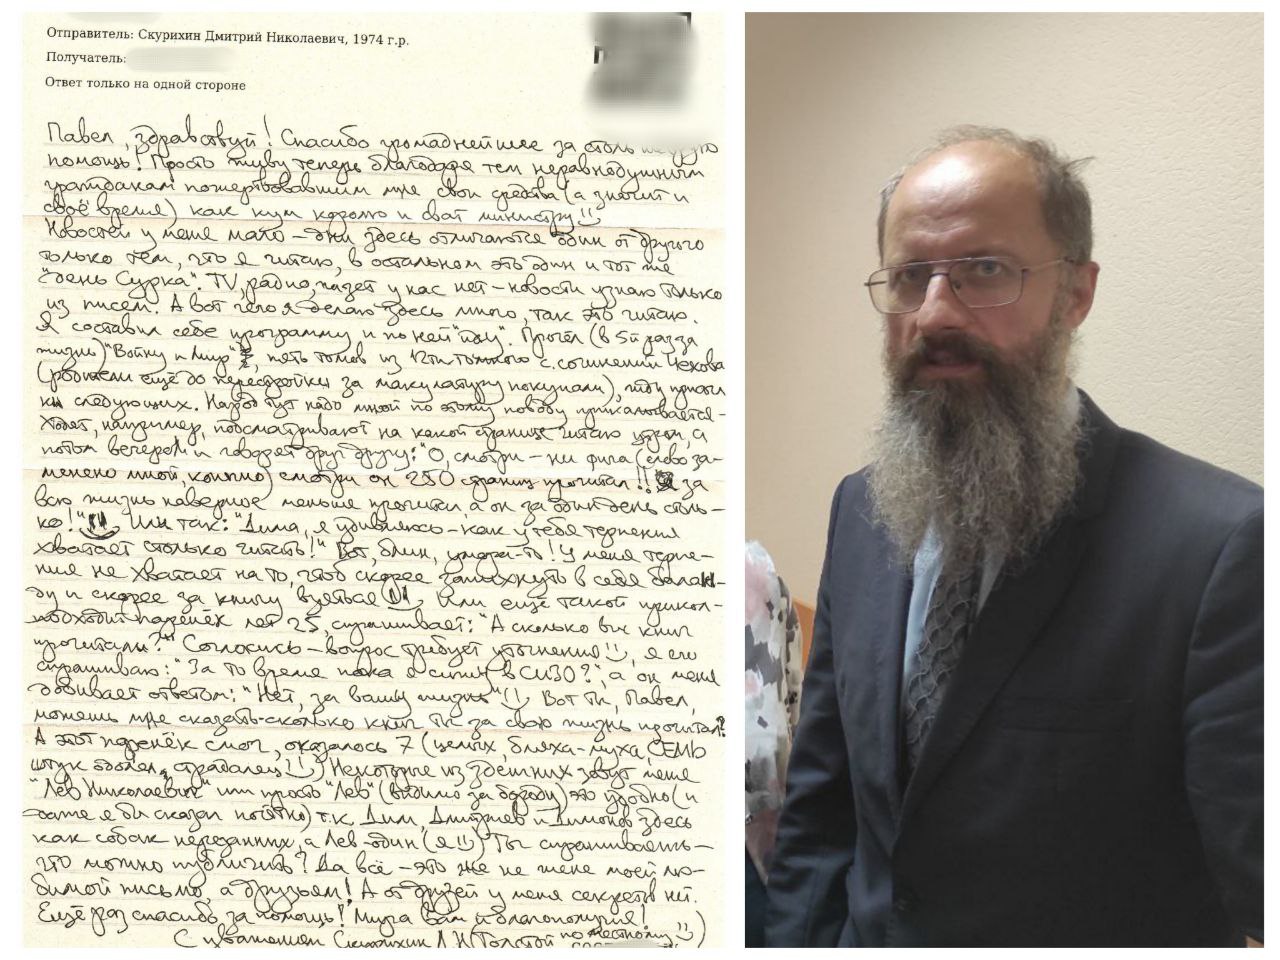 Отправитель: Скурихин Дмитрий Николаевич, 1974 г.р.
Получатель:
Ответ только на одной стороне
Павел, здравствуй! Спасибо громаднейшее за столь
помощь! Просто живу теперь благодаря тем неравнодушным
гражданам пожертвовавшим мне свои средства (а значит и
своё время) как кум королю и сват министру
Новостей у меня мало – дни здесь отличаются один от другого
только тем, что я читаю, в остальном это один и тот же
"день Сурка". TV, радио, газет у нас нет – новости узнаю только
из писем. А вот чего я делаю здесь много, так это читаю.
Я составил себе программу и по ней "иду". Прочёл (в 5й раз за
жизнь) "Войну и Мир", пять томов из 12ти томного с. сочинений Чехова
(родители ещё до перестройки за макулатуру покупали), жду присыл
ки следующих. Народ тут надо мной по этому поводу прикалывается –
ходят, например, подсматривают на какой странице читаю утром, а
потом вечером и говорят друг другу: "О, смотри – ни фига (слово за-
менено мной, конечно) смотри он 250 страниц прочитал!! Я за
всю жизнь наверное меньше прочитал а он за один день столь-
ко!" Или так: "Дима, я удивляюсь – как у тебя терпения
хватает столько читать!" Вот, блин, умора-то! У меня терпе-
ния не хватает на то, чтоб скорее запихнуть в себя балан-
ду и скорее за книгу взяться Или ещё такой прикол –
подходит паренёк лет 25, спрашивает: "А сколько вы книг
прочитали?" Согласись – вопрос требует уточнения, я его
спрашиваю: "За то время пока я сижу в СИЗО?", а он меня
добивает ответом: "Нет, за вашу жизнь" Вот ты, Павел,
можешь мне сказать сколько книг ты за свою жизнь прочитал?
А этот паренёк смог, оказалось 7 (целых, бляха-муха, СЕМЬ
штук одолел, страдалец) Некоторые из здешних зовут меня
"Лев Николаевич" или просто "Лев" (видимо за бороду) это удобно (и
даже я бы сказал почётно) т.к. Дим, Дмитриев и Димонов здесь
как собак нерезанных, а Лев – один (я) Ты спрашиваешь –
что можно публичить? Да всё – это же не жене моей лю-
бимой письмо, а друзьям! А от друзей у меня секретов нет.
Ещё раз спасибо за помощь! Мира Вам и благополучия!
С уважением Скурихин Д.Н (Толстой по местному)